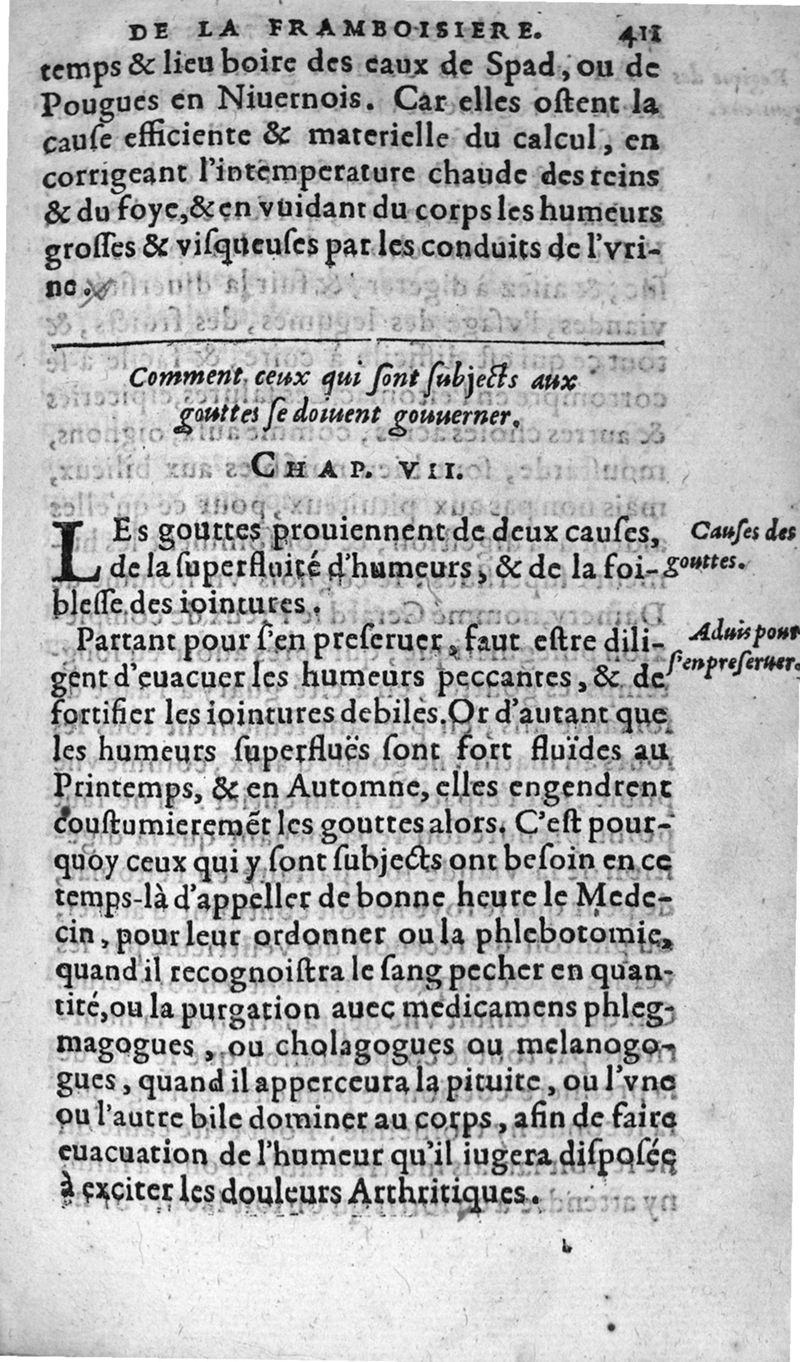 DE LA FRAMBOISIERE. 411
temps & lieu boire des eaux de Spad, ou de
Pougues en Niuernois. Car elles oſtent la
cauſe efficiente & materielle du calcul, en
corrigeant l'intemperature chaude des reins
& du foye, & en vuidant du corps les humeurs
groſſes & viſqueuſes par les conduits de l'vri-
ne.
Comment ceux qui ſont ſubjects aux
gouttes ſe doiuent gouuerner.
CHAP. VII.
LEs gouttes prouiennent de deux cauſes,
de la ſuperfluité d'humeurs, & de la foi-
bleſſe des iointures.
Cauſes des
gouttes.
Partant pour ſ'en preſeruer, faut eſtre dili-
gent d'euacuer les humeurs peccantes, & de
fortifier les iointures debiles. Or d'autant que
les humeurs ſuperfluës ſont fort fluïdes au
Printemps, & en Automne, elles engendrent
couſtumieremẽt les gouttes alors. C'eſt pour-
quoy ceux qui y ſont ſubjects ont beſoin en ce
temps-là d'appeller de bonne heure le Mede-
cin, pour leur ordonner ou la phlebotomie,
quand il recognoiſtra le ſang pecher en quan-
tité, ou la purgation auec medicamens phleg-
magogues, ou cholagogues ou melanogo-
gues, quand il apperceura la pituite, ou l'vne
ou l'autre bile dominer au corps, afin de faire
euacuation de l'humeur qu'il iugera diſpoſée
à exciter les douleurs Arthritiques.
Aduis pour
ſ'en preſeruer.